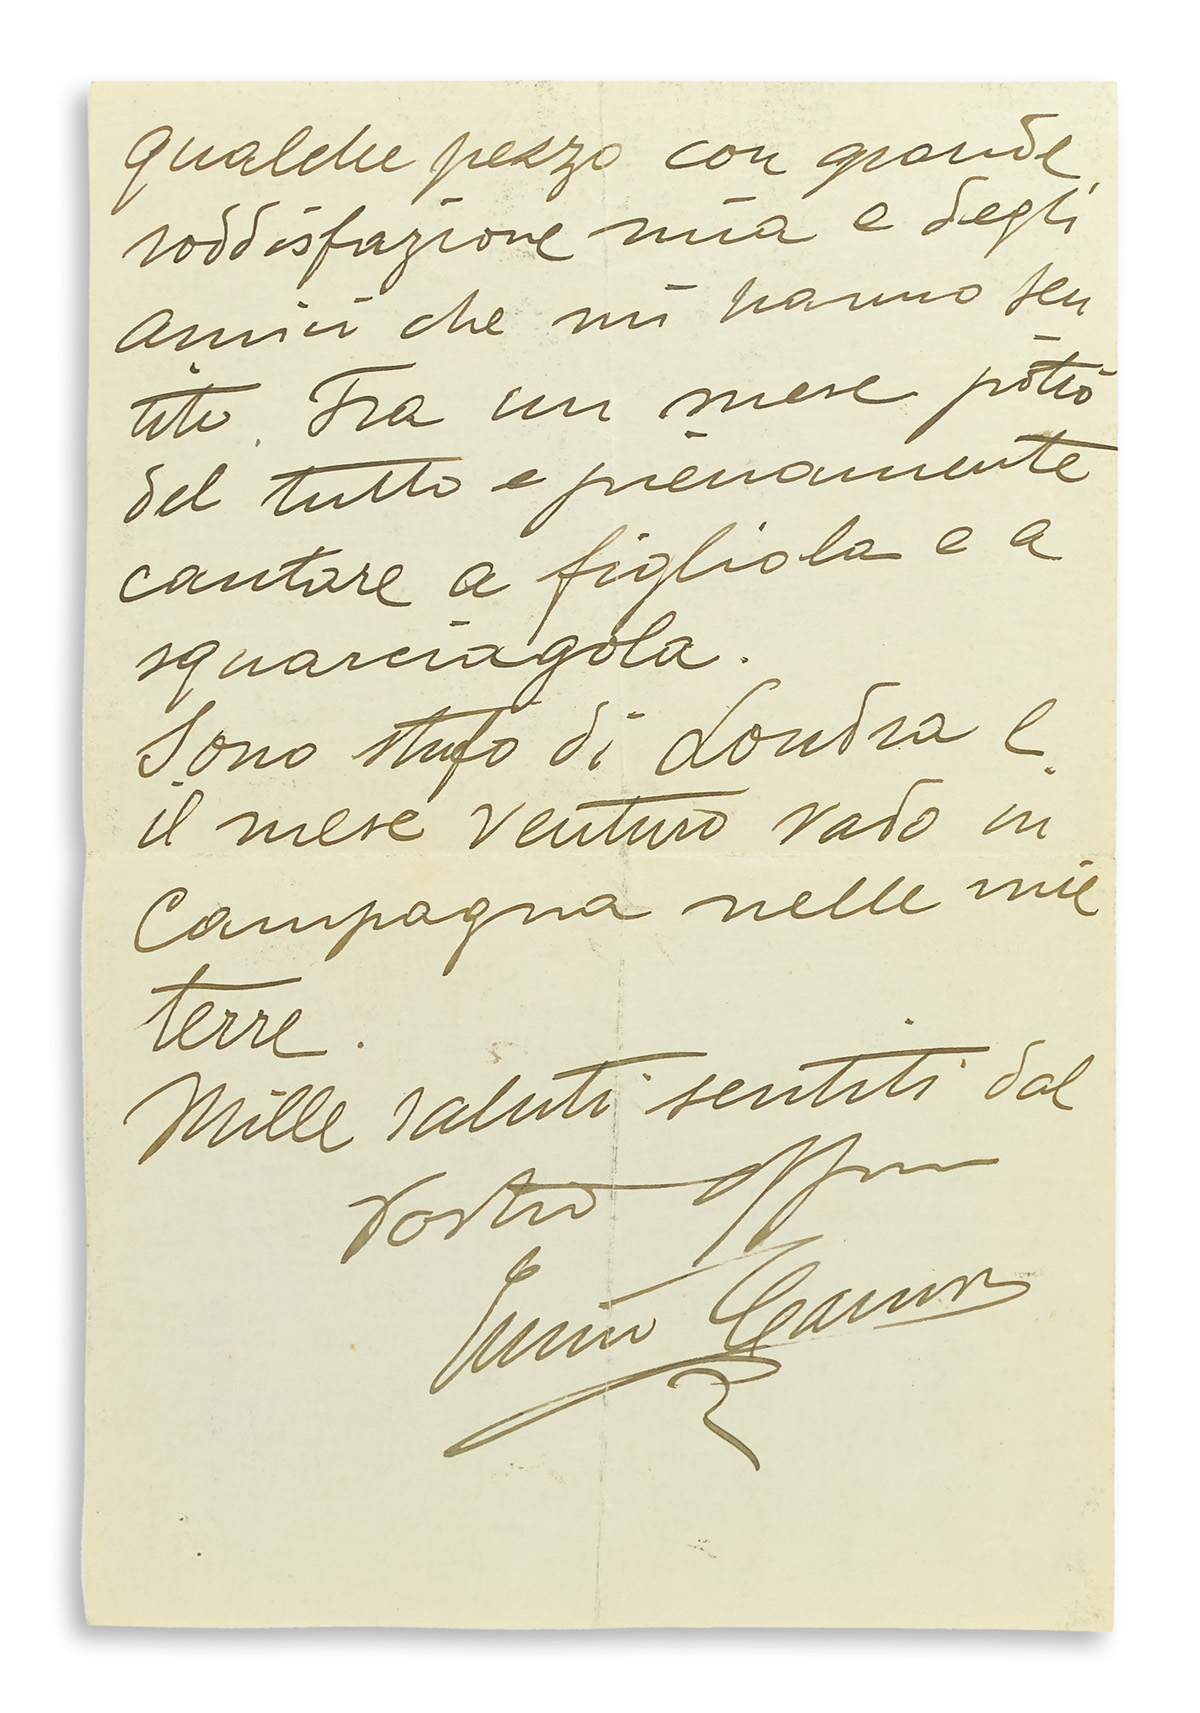 qualche pezzo con grande
soddisfazione mia e degli
amici che mi hanno sen
tito. Fra un mese potrò
del tutto e pienamente
cantare a figliola e a
squarciagola.
Sono stufo di Londra e
il mese venturo vado in
Campagna nelle mie
terre.
Mille saluti sentiti dal
vostro affmo
Enrico Caruso